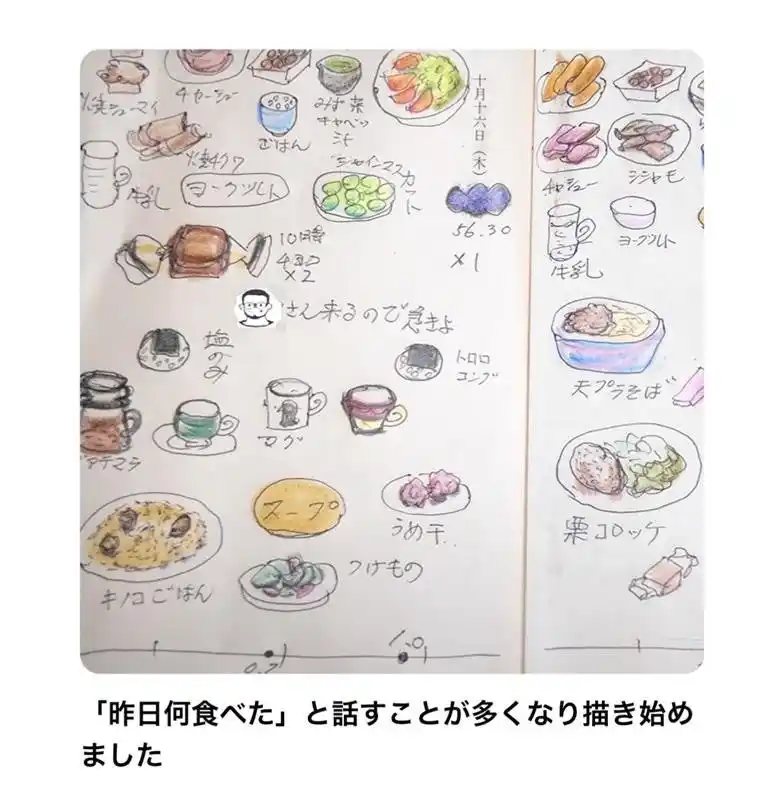 焼シューマイ
チャーシュー
ごはん
みず菜
キャベツ
汁
十月十六日（木）
焼チクワ
牛乳
ヨーグルト
シャインマスカット
56.30
×1
10時
×2
さん来るので急きょ
塩のみ
トロロ
コンブ
マグ
スープ
うめ干
キノコごはん
つけもの
1.0
チャシュー
シシャモ
牛乳
ヨーグルト
天プラそば
栗コロッケ
「昨日何食べた」と話すことが多くなり描き始め
ました